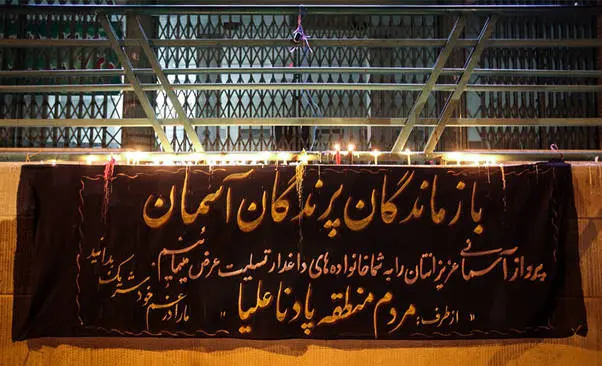 بازماندگان پرندگان آسمان
پرواز آسمانی عزیزانتان را به شما خانواده های داغدار تسلیت عرض مینمائیم
ما را در غم خود شریک بدانید
" از طرف: مردم منطقه پادنا علیا "